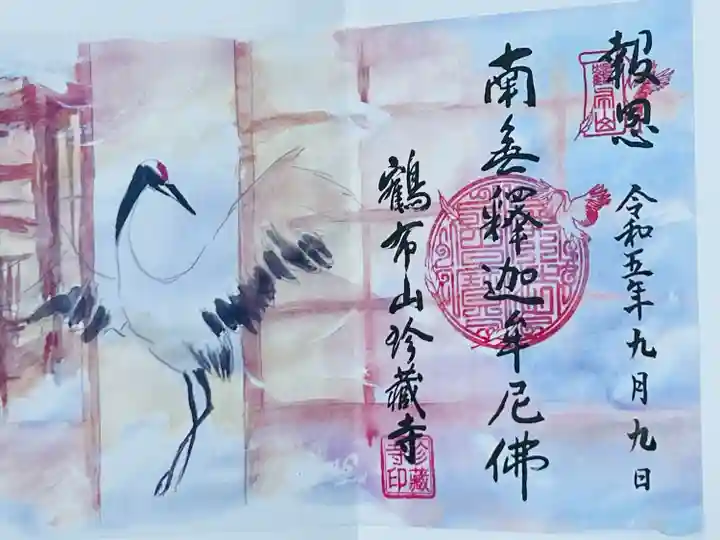 報恩
令和五年九月九日
南無釋迦牟尼佛
鶴布山珍藏寺
珍藏寺印